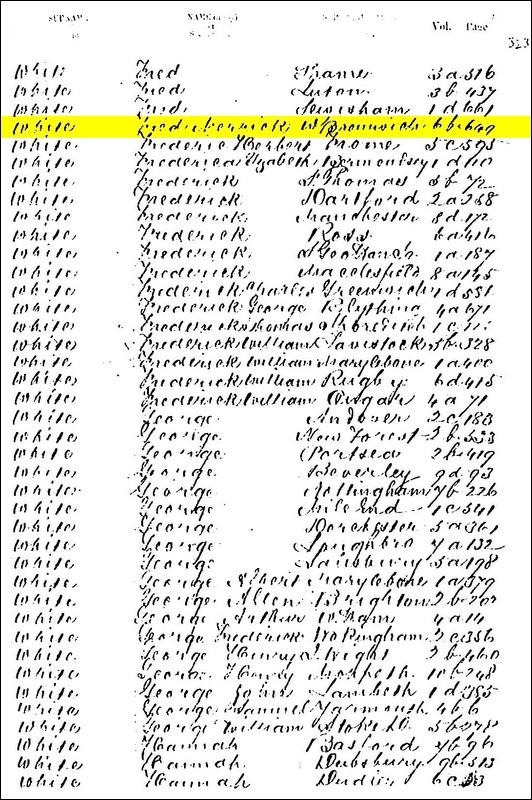 SURNAME Vol. Page
323
White Fred Thame 3a 516
White Fred Luton 3b 437
White Fred Lewisham 1d 661
White W Bromwich 6b 649
White Frederic Herbert Frome 5c 595
White Frederica Elizabeth Bermondsey 1d
White Frederick S. Thomas 5b 72
White Frederick Dartford 2a 268
White Frederick Manchester 8d 172
White Frederick Ross 6a 416
White Frederick S Geo Han Sq 1a 187
White Frederick Macclesfield 8a 145
White Frederick Charles Greenwich 1d 551
White Frederick George R 4a 671
White Frederick Thomas 1c
White Frederick William Tavistock 5b 328
White Frederick William Marylebone 1a 400
White Frederick William Rugby 6d 415
White Frederick William Ongar 4a 71
White George Andover 2c 188
White George New Forest 2b 533
White George Portsea 2b 419
White George Beverley 9d 93
White George Nottingham 7b 226
White George Mile End 1c 541
White George Dorchester 5a 361
White George Loughbro 7a 132
White George 5a 198
White George Albert Marylebone 1a 579
White George Allen Brighton 2b 207
White George Arthur W. Ham 4a 14
White George Frederick Wokingham 2c 356
White George Henry I. Wight 2b 460
White George Henry Morpeth 10b 248
White George John Lambeth 1d 385
White George Samuel Yarmouth 4b 6
White George William Stoke D. 5b 278
White Hannah Basford 7b 96
White Hannah Dewsbury 9b 513
White Hannah Dudley 6c